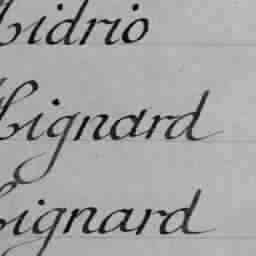 idrio
ignard
ignard